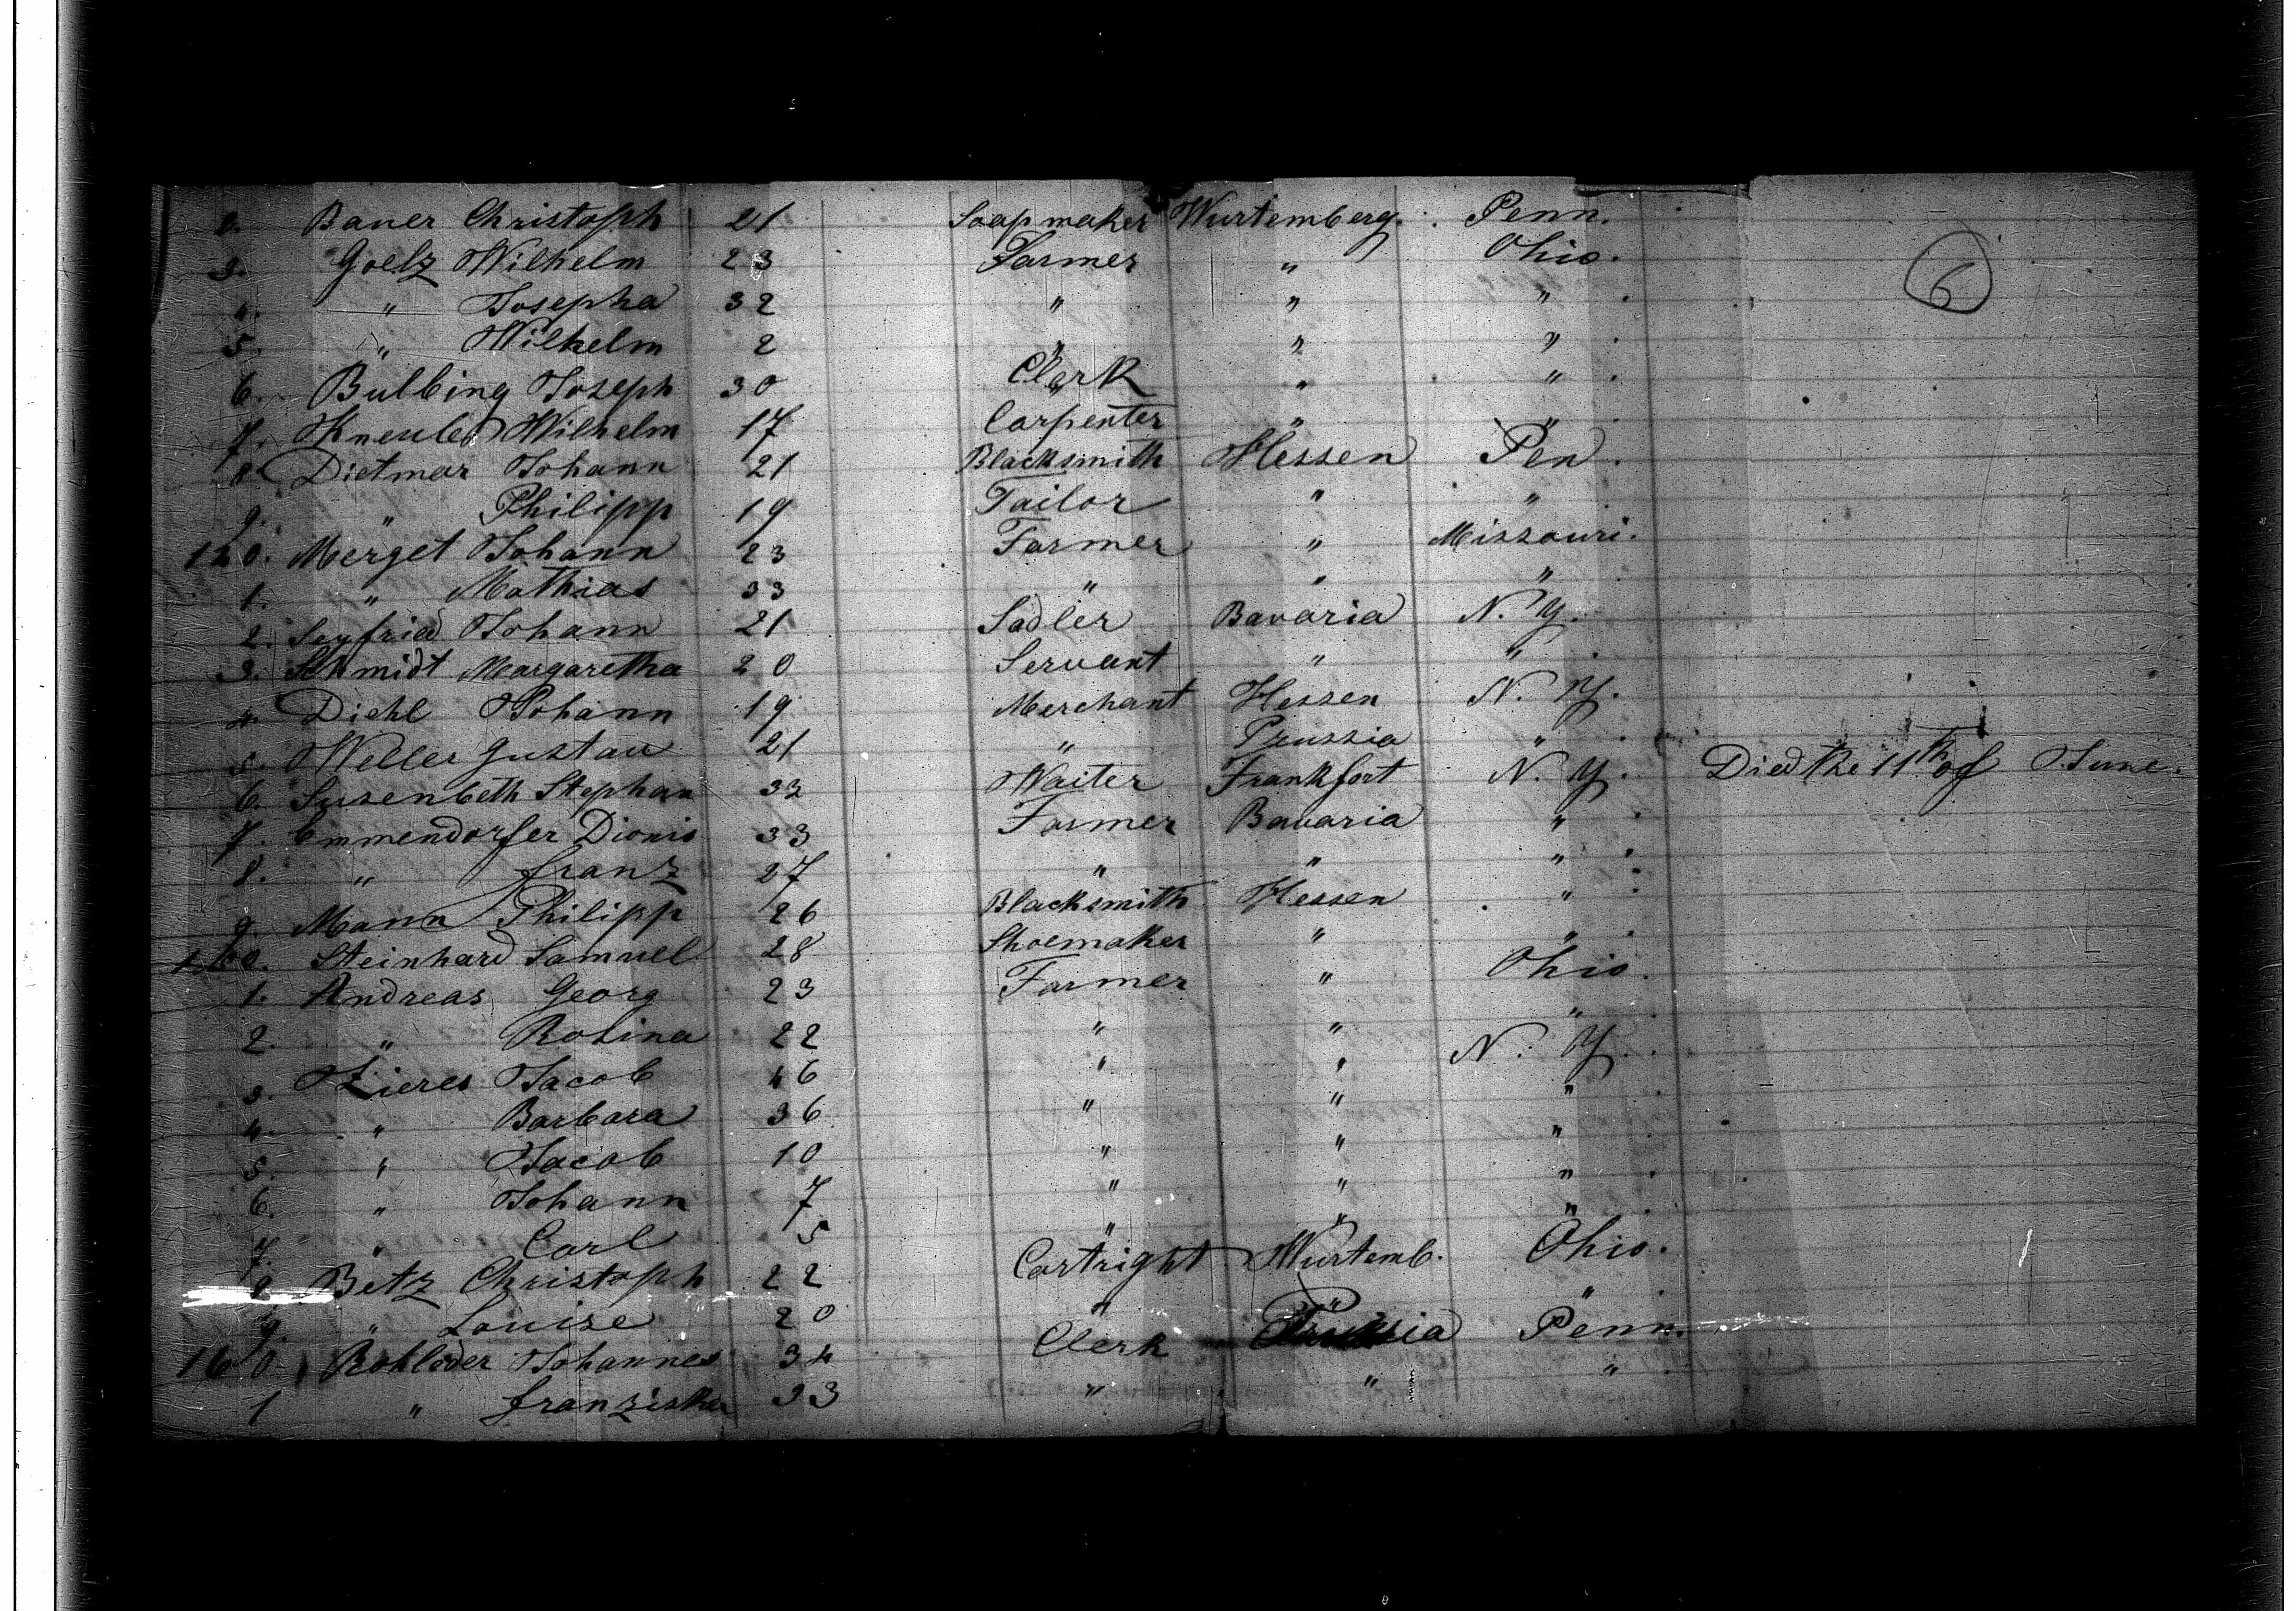 2. Bauer Christoph 21 Soapmaker Wurtemberg. Penn.
3. Goelz Wilhelm 23 Farmer " Ohio.
4. " Josepha 32 " " "
5. " Wilhelm 2 " " "
6. Bulbing Joseph 30 Clerk " "
7. Wilhelm 17 Carpenter " "
8. Dietmar Johann 21 Blacksmith Hessen Pen.
9. " Philipp 19 Tailor " "
Merget Johann 23 Farmer " Missouri.
1. " Mathias 33 " " "
2. Seyfried Johann 21 Sadler Bavaria N. Y.
3. Schmidt Margaretha 20 Servant " "
4. Diehl Johann 19 Merchant Hessen N. Y.
5. Weller Gustav 21 " Prussia "
6. Susenbeth Stephan 33 Waiter Frankfort N. Y. Died the 11th of June.
7. Emmendorfer Dionis 33 Farmer Bavaria "
8. " Franz 27 " " "
9. Mann Philipp 26 Blacksmith Hessen "
Steinhard Samuel 28 Shoemaker " "
1. Andreas Georg 23 Farmer " Ohio.
2. " Rosina 22 " " "
3. Zieres Jacob 46 " " N. Y.
4. " Barbara 36 " " "
5. " Jacob 10 " " "
6. " Johann 7 " " "
7. " Carl 5 " " "
8 Betz Christoph 22 Cartright Wurtemb. Ohio.
9. " Louise 20 " " "
160 Rohleder Johannes 34 Clerk Prussia Penn.
1 " Franziska 33 " " "
6